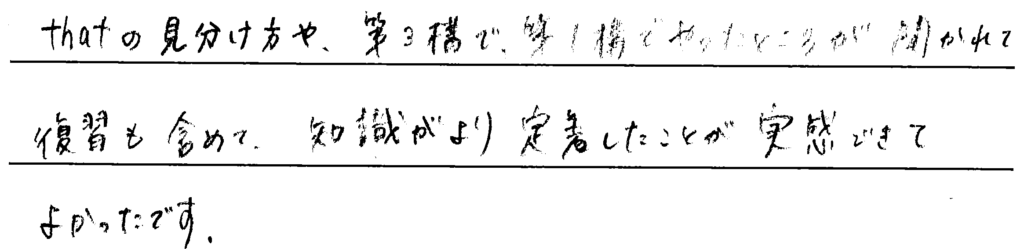 thatの見分け方や、第3構で、第1構でやったところが聞かれて
復習も含めて、知識がより定着したことが実感できて
よかったです。